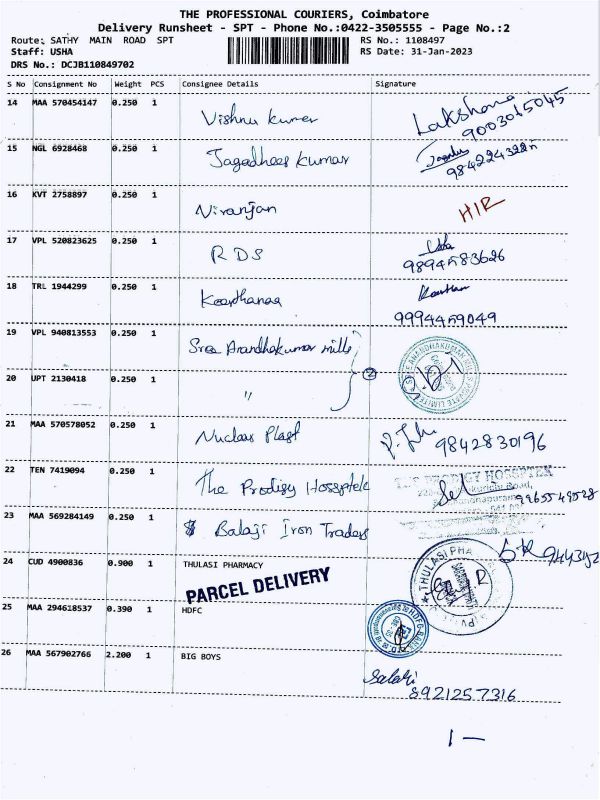 THE PROFESSIONAL COURIERS, Coimbatore
Delivery Runsheet - SPT - Phone No.:0422-3505555 - Page No.:2
Route: SATHY MAIN ROAD SPT RS No.: 1108497
Staff: USHA RS Date: 31-Jan-2023
DRS No.: DCJB110849702
S No Consignment No Weight PCS Consignee Details Signature
14 MAA 570454147 0.250 1 Vishnu kumar Lakshana
9003015045
15 NGL 6928468 0.250 1 Jagadhees kumar
16 KVT 2758897 0.250 1 Niranjan HIR
17 VPL 520823625 0.250 1 RDS Usha
9894583626
18 TRL 1944299 0.250 1 Keerthanaa
9994459049
19 VPL 940813553 0.250 1 Sree Anandhakumar mills
20 UPT 2130418 0.250 1 " 2
21 MAA 570578052 0.250 1 Nuclear Plast 9842830196
22 TEN 7419094 0.250 1 The Prodigy Hossptek THE PRODIGY HOSSPTEK
9965549528
23 MAA 569284149 0.250 1 $ Balaji Iron Traders
24 CUD 4900836 0.900 1 THULASI PHARMACY THULASI PHA
PARCEL DELIVERY
25 MAA 294618537 0.390 1 HDFC HDFC BANK
26 MAA 567902766 2.200 1 BIG BOYS
8921257316
1 —